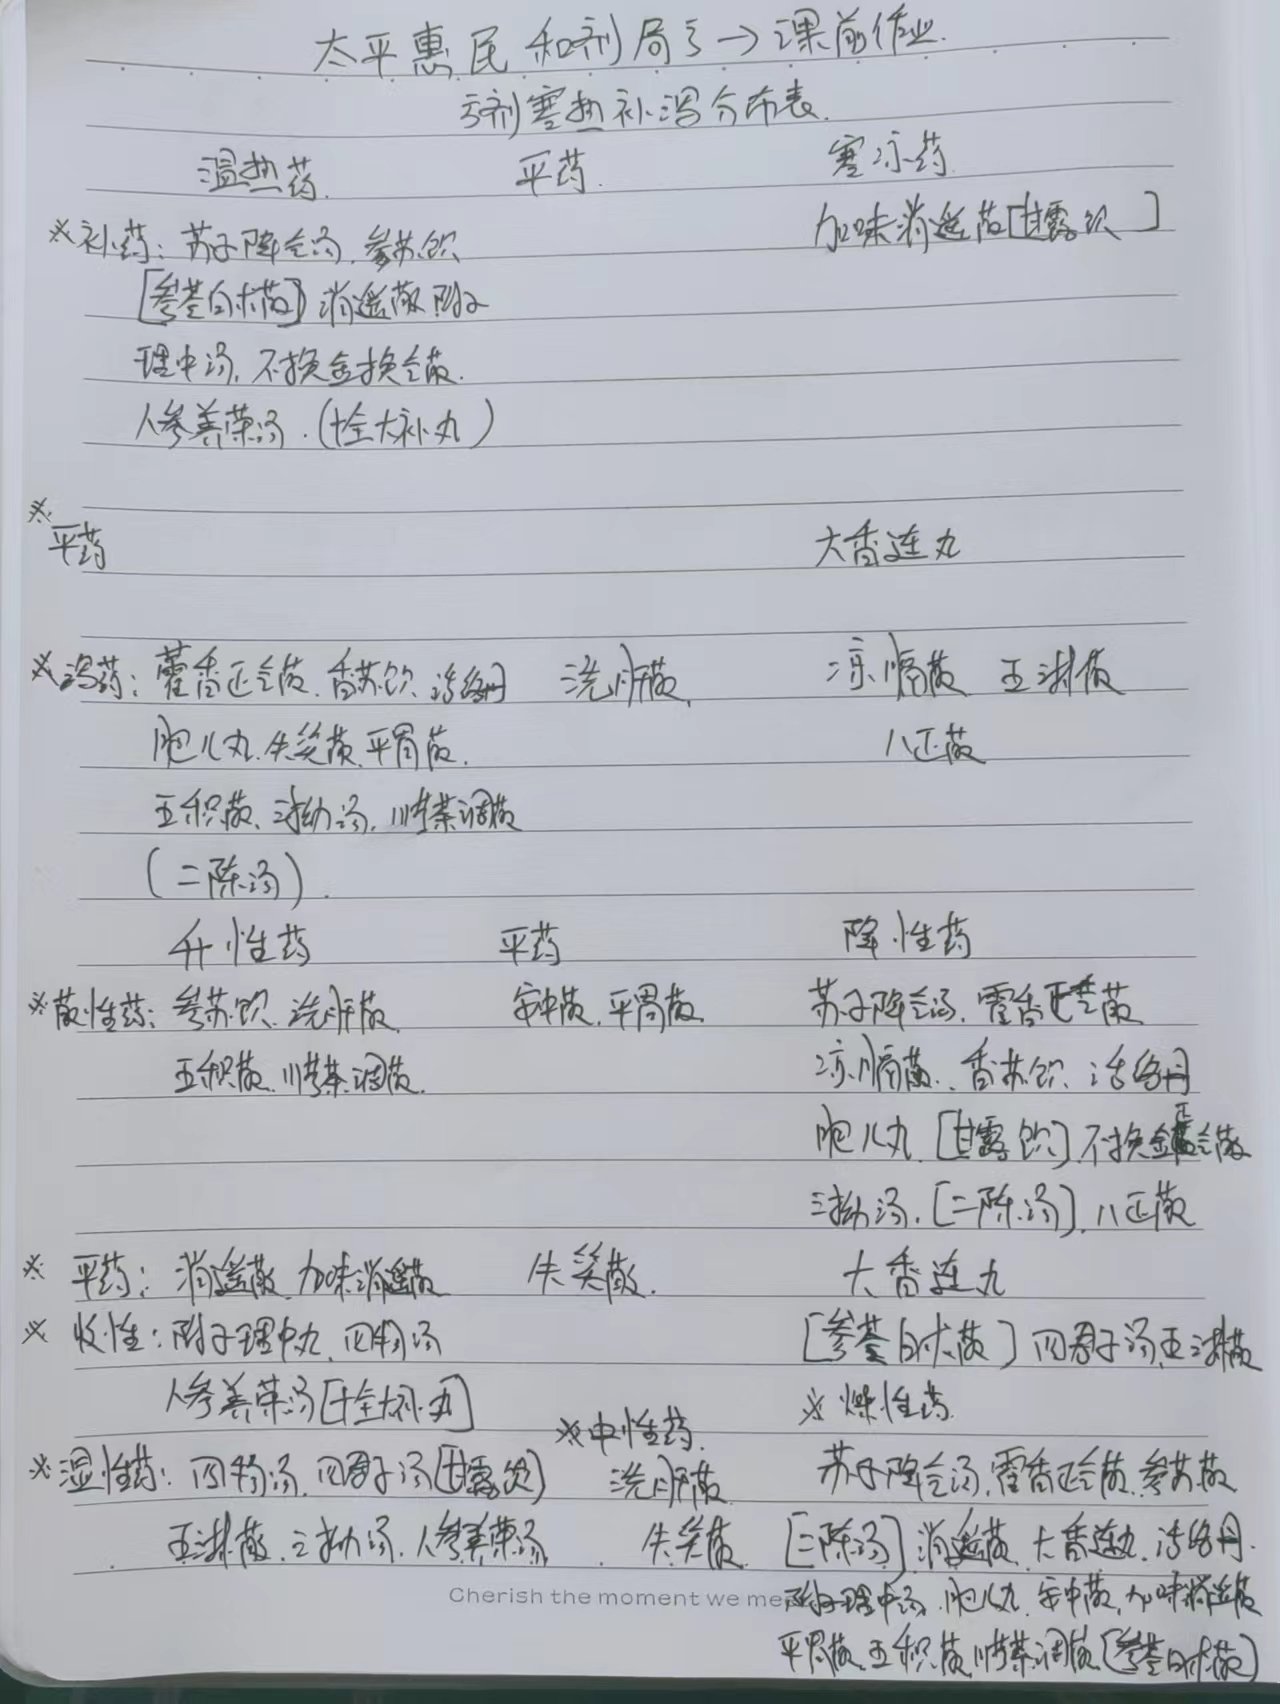 太平惠民和剂局方→课前作业.
方剂寒热补泻分布表.
温热药. 平药. 寒凉药
※补药: 苏子降气汤. 参苏饮 加味消遥散[甘露饮]
[参苓白术散] 消遥散 附子
理中汤, 不换金换气散.
人参养荣汤. (十全大补丸)
※平药 大香连丸
※泻药: 藿香正气散. 香苏饮. 活络丹 洗肝散, 凉膈散 五淋散
肥儿丸. 失笑散. 平胃散. 八正散
五积散、三拗汤, 川芎茶调散
(二陈汤).
升性药 平药 降性药
※散性药: 参苏饮. 洗肝散, 安中散, 平胃散, 苏子降气汤, 藿香正气散
五积散、川芎茶调散. 凉膈散、香苏饮、活络丹
肥儿丸、[甘露饮], 不换金正气散
三拗汤, [二陈汤], 八正散
※ 平药: 消遥散, 加味消遥散 失笑散. 大香连丸
※ 收性: 附子理中丸, 四物汤 [参苓白术散] 四君子汤, 五淋散
人参养荣汤[十全大补丸] ※中性药. ※ 燥性药.
※湿性药: 四物汤, 四君子汤[甘露饮] 洗肝散 苏子降气汤, 藿香正气散, 参苏散
五淋散, 三拗汤, 人参养荣汤 失笑散 [二陈汤] 消遥散, 大香连丸, 活络丹.
Cherish the moment we me 附子理中汤, 肥儿丸, 安中散, 加味消遥散
平胃散, 五积散, 川芎茶调散, [参苓白术散]